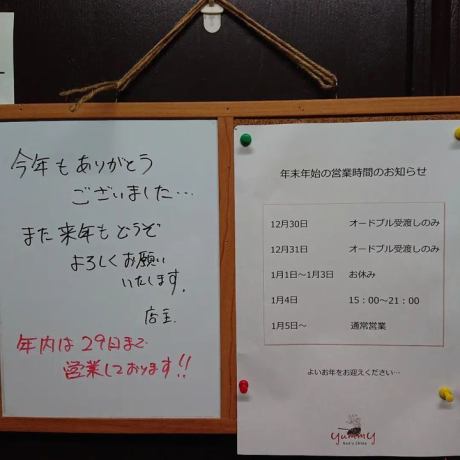 今年もありがとう
ございました…
また来年もどうぞ
よろしくお願い
いたします。
店主.
年内は29日まで
営業しております!!
年末年始の営業時間のお知らせ
12月30日 オードブル受渡しのみ
12月31日 オードブル受渡しのみ
1月1日～1月3日 お休み
1月4日 15：00～21：00
1月5日～ 通常営業
よいお年をお迎えください…
yummy